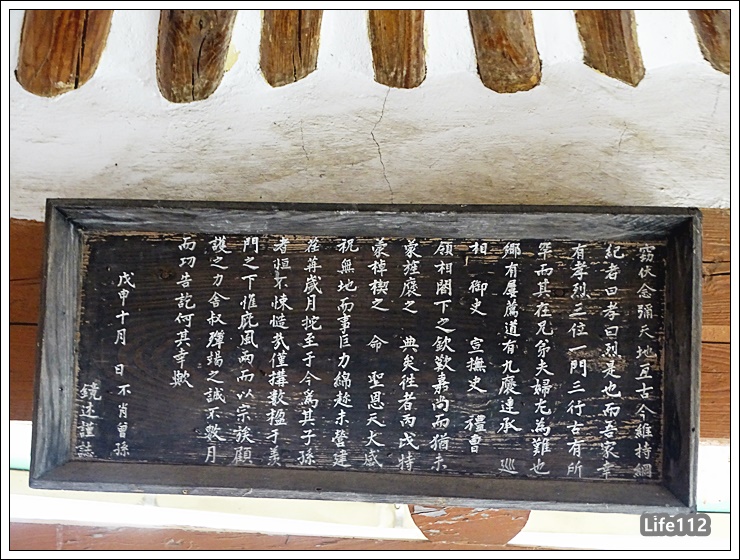 竊伏念彌天地亘古今維持綱
紀者曰孝曰烈是也而吾家幸
有孝烈三位一門三行古有所
罕而其在兄弟夫婦尤為難也
鄉有屢薦道有九度連承 巡
相 御史 宣撫史 禮曹
領相閤下之欽歎嘉尚而猶未
蒙旌褒之 典矣往者丙戌特
蒙棹楔之 命 聖恩天大感
祝無地而事巨力綿趁未營建
荏苒歲月拕至于今爲其子孫
者恒不悚慥哉僅搆數楹于羨
門之下惟庇風雨而以宗族顧
護之力舍叔殫竭之誠不數月
而功告訖何其幸歟
戊申十月 日不肖曾孫
鏡述謹誌
Life112